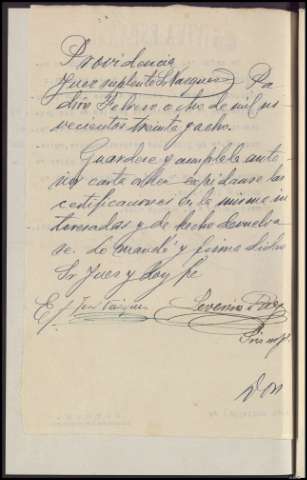 Providencia
Juez suplente Sr Vazquez Pa
drón Febrero ocho de mil no
vecientos treinta y ocho.
Guardese y cumplase ante
rior carta orden expidanse las
certificaciones en la misma in
teresadas y de hecho devuelva
se. Lo mandó y firma dicho
Sr Juez y doy fe
E/ José Vazquez Severino